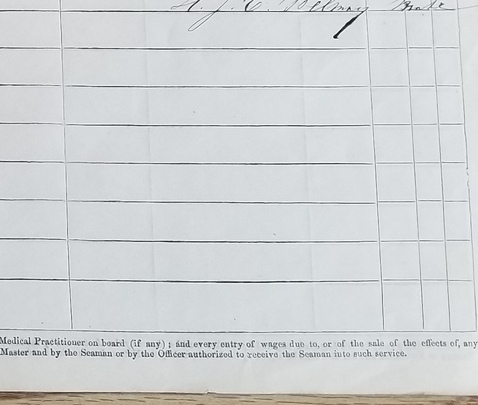 Mate
Medical Practitioner on board (if any) ; and every entry of wages due to, or of the sale of the effects of, any
Master and by the Seaman or by the Officer authorized to receive the Seaman into such service.